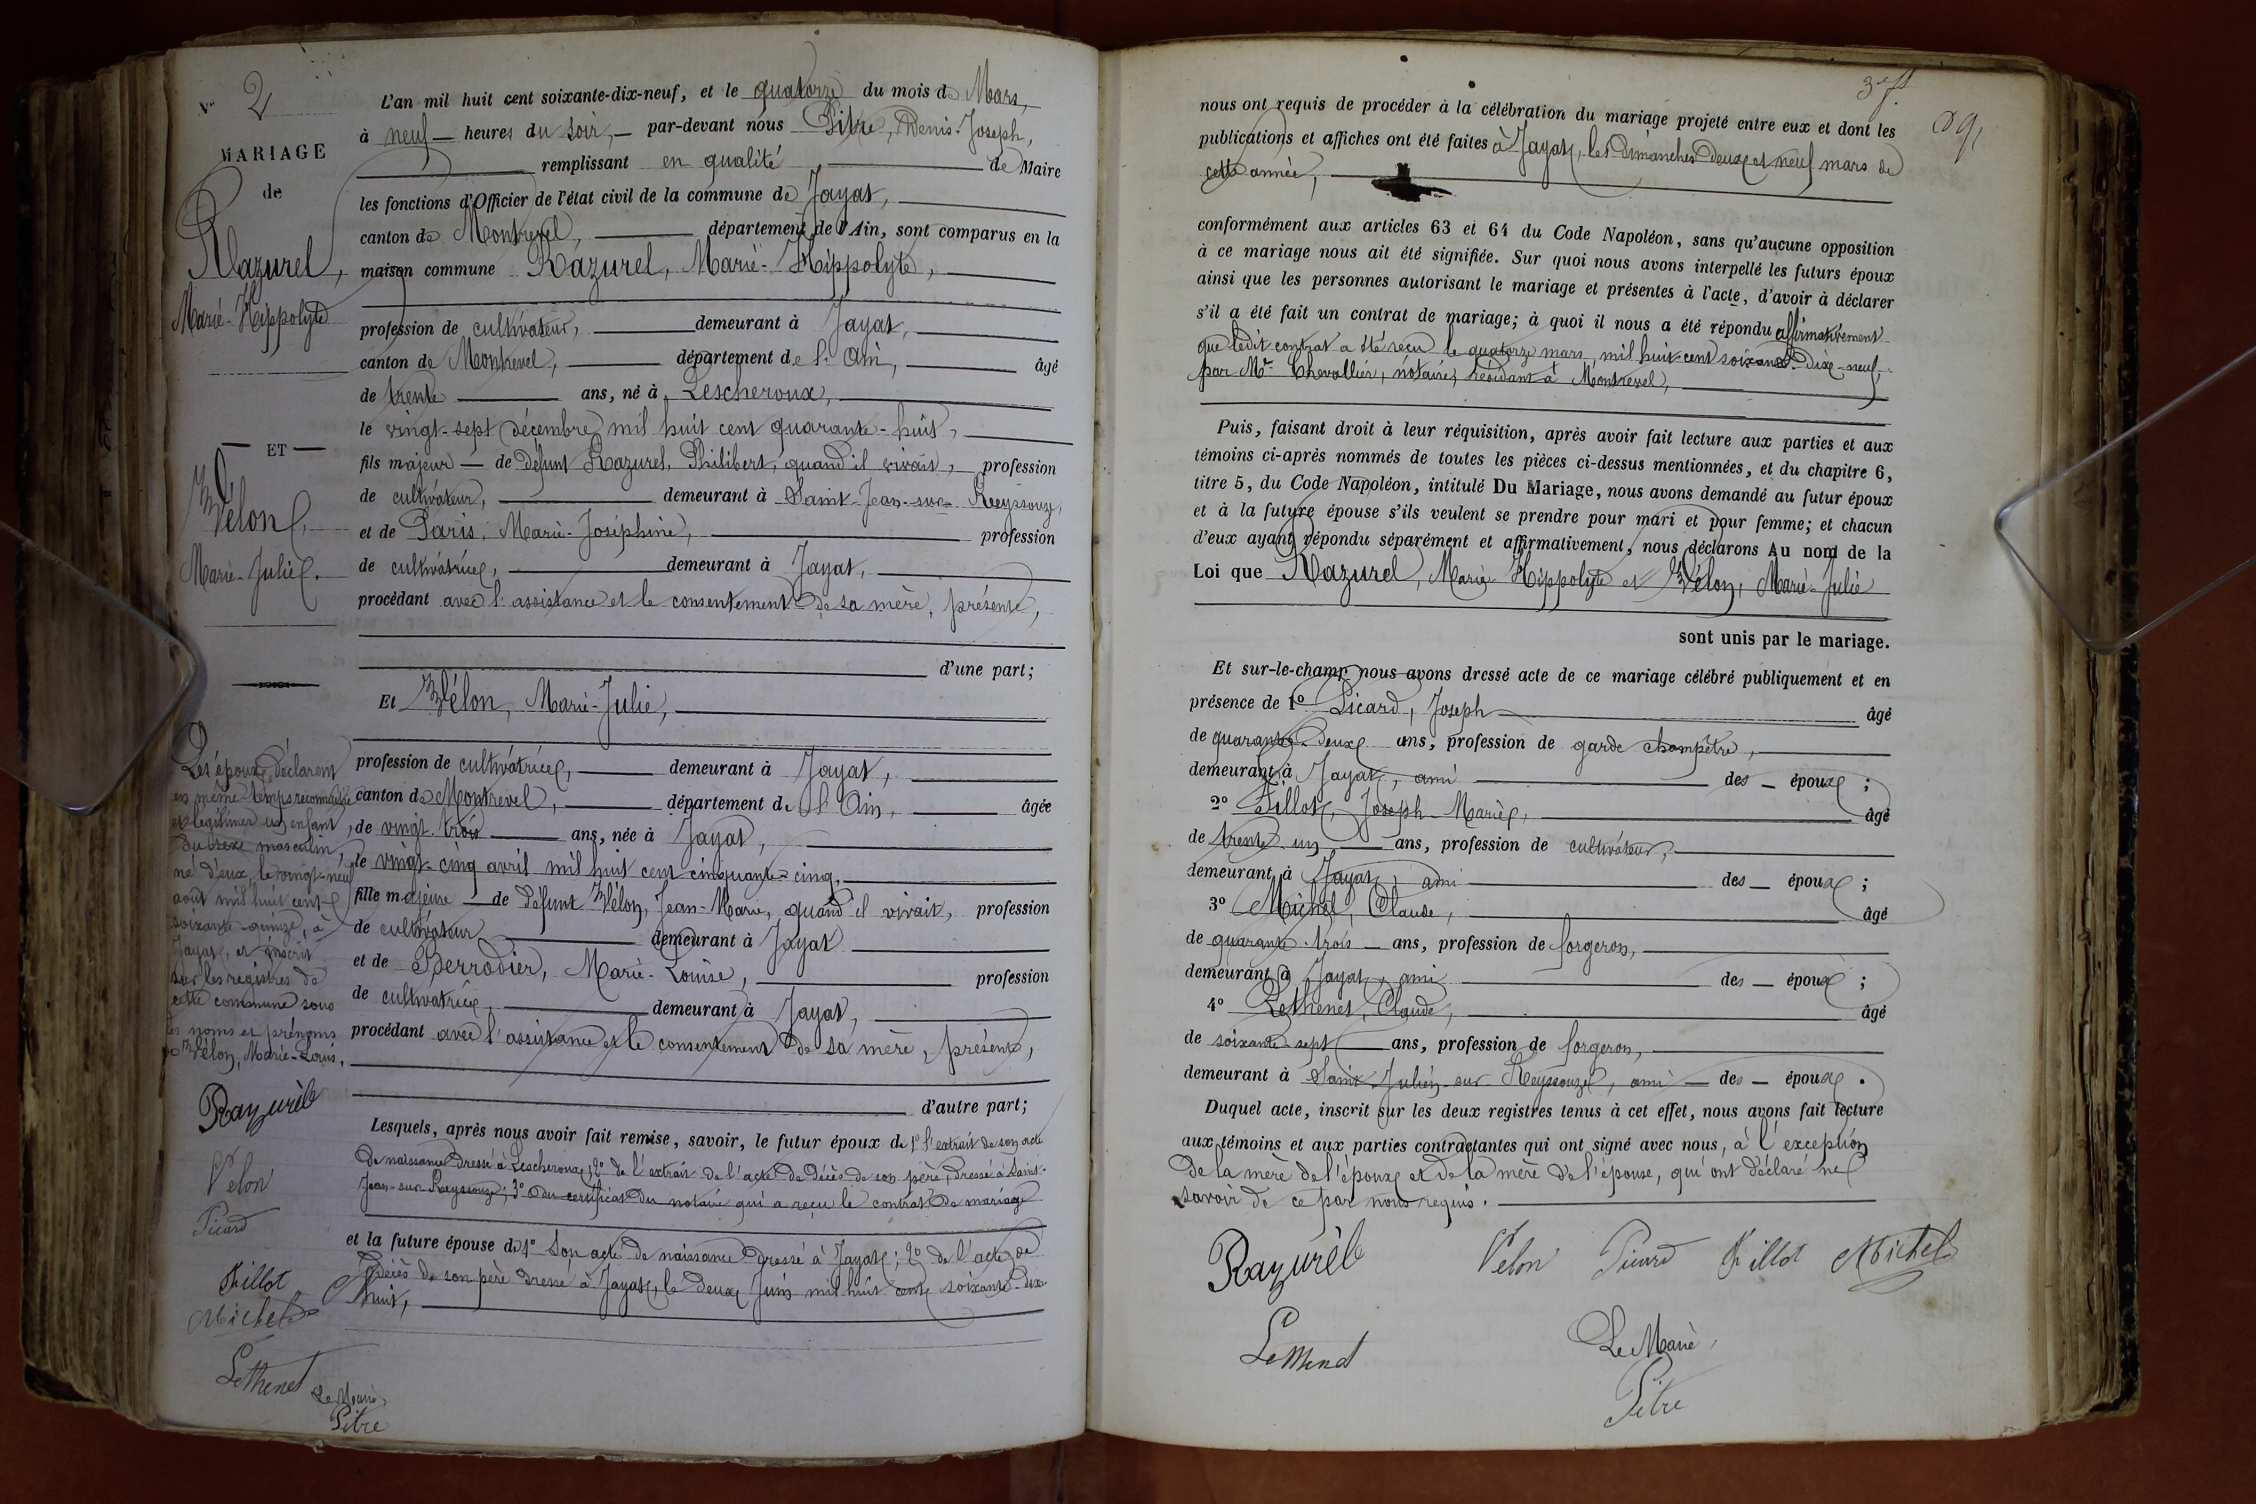 N° 2
MARIAGE
de
Razurel,
Marie-Hippolyte
ET
Vélon,
Marie-Julie.
Les époux déclarent
en même temps reconnaître
et légitimer un enfant
du sexe masculin,
né d'eux, le vingt-neuf
août mil huit cent
soixante-quinze, à
Jayat, et inscrit
sur les registres de
cette commune sous
les noms et prénoms
de Vélon, Marie-Louis.
Razurèl
Vélon
Picard
Fillot
Michel
Lethenet
Le Maire,
Pitre
L'an mil huit cent soixante-dix-neuf, et le quatorze du mois de Mars,
à neuf heures du soir, par-devant nous Pitre, Denis-Joseph,
remplissant en qualité de Maire
les fonctions d'Officier de l'état civil de la commune de Jayat,
canton de Montrevel, département de l'Ain, sont comparus en la
maison commune Razurel, Marie-Hippolyte,
profession de cultivateur, demeurant à Jayat,
canton de Montrevel, département de l'Ain, âgé
de trente ans, né à Lescheroux,
le vingt-sept décembre mil huit cent quarante-huit,
fils majeur de défunt Razurel, Philibert, quand il vivait, profession
de cultivateur, demeurant à Saint-Jean-sur-Reyssouze,
et de Paris, Marie-Joséphine, profession
de cultivatrice, demeurant à Jayat,
procédant avec l'assistance et le consentement de sa mère, présente,
d'une part;
Et Vélon, Marie-Julie,
profession de cultivatrice, demeurant à Jayat,
canton de Montrevel, département de l'Ain, âgée
de vingt-trois ans, née à Jayat,
le vingt-cinq avril mil huit cent cinquante-cinq,
fille majeure de défunt Vélon, Jean-Marie, quand il vivait, profession
de cultivateur demeurant à Jayat
et de Perrodier, Marie-Louise, profession
de cultivatrice, demeurant à Jayat,
procédant avec l'assistance et le consentement de sa mère, présente,
d'autre part;
Lesquels, après nous avoir fait remise, savoir, le futur époux de 1° l'extrait de son acte
de naissance dressé à Lescheroux; 2° de l'extrait de l'acte de décès de son père, dressé à Saint-
Jean-sur-Reyssouze; 3° du certificat du notaire qui a reçu le contrat de mariage
et la future épouse de 1° son acte de naissance dressé à Jayat; 2° de l'acte de
décès de son père dressé à Jayat, le deux Juin mil huit cent soixante-dix-
huit,
3e ft
89
nous ont requis de procéder à la célébration du mariage projeté entre eux et dont les
publications et affiches ont été faites à Jayat, les Dimanches deux et neuf mars de
cette année,
conformément aux articles 63 et 64 du Code Napoléon, sans qu'aucune opposition
à ce mariage nous ait été signifiée. Sur quoi nous avons interpellé les futurs époux
ainsi que les personnes autorisant le mariage et présentes à l'acte, d'avoir à déclarer
s'il a été fait un contrat de mariage; à quoi il nous a été répondu affirmativement
que ledit contrat a été reçu le quatorze mars mil huit cent soixante-dix-neuf,
par Me Chevallier, notaire, résidant à Montrevel,
Puis, faisant droit à leur réquisition, après avoir fait lecture aux parties et aux
témoins ci-après nommés de toutes les pièces ci-dessus mentionnées, et du chapitre 6,
titre 5, du Code Napoléon, intitulé Du Mariage, nous avons demandé au futur époux
et à la future épouse s'ils veulent se prendre pour mari et pour femme; et chacun
d'eux ayant répondu séparément et affirmativement, nous déclarons Au nom de la
Loi que Razurel, Marie-Hippolyte et Vélon, Marie-Julie
sont unis par le mariage.
Et sur-le-champ nous avons dressé acte de ce mariage célébré publiquement et en
présence de 1° Picard, Joseph âgé
de quarante-deux ans, profession de garde champêtre,
demeurant à Jayat, ami des époux;
2° Fillot, Joseph-Marie, âgé
de trente-un ans, profession de cultivateur,
demeurant à Jayat, ami des époux;
3° Michel, Claude, âgé
de quarante-trois ans, profession de forgeron,
demeurant à Jayat, ami des époux;
4° Lethenet, Claude, âgé
de soixante-sept ans, profession de forgeron,
demeurant à Saint-Julien-sur-Reyssouze, ami des époux.
Duquel acte, inscrit sur les deux registres tenus à cet effet, nous avons fait lecture
aux témoins et aux parties contractantes qui ont signé avec nous, à l'exception
de la mère de l'époux et de la mère de l'épouse, qui ont déclaré ne
savoir de ce par nous requis.
Razurèl Vélon Picard Fillot Michel
Lethenet Le Maire,
Pitre